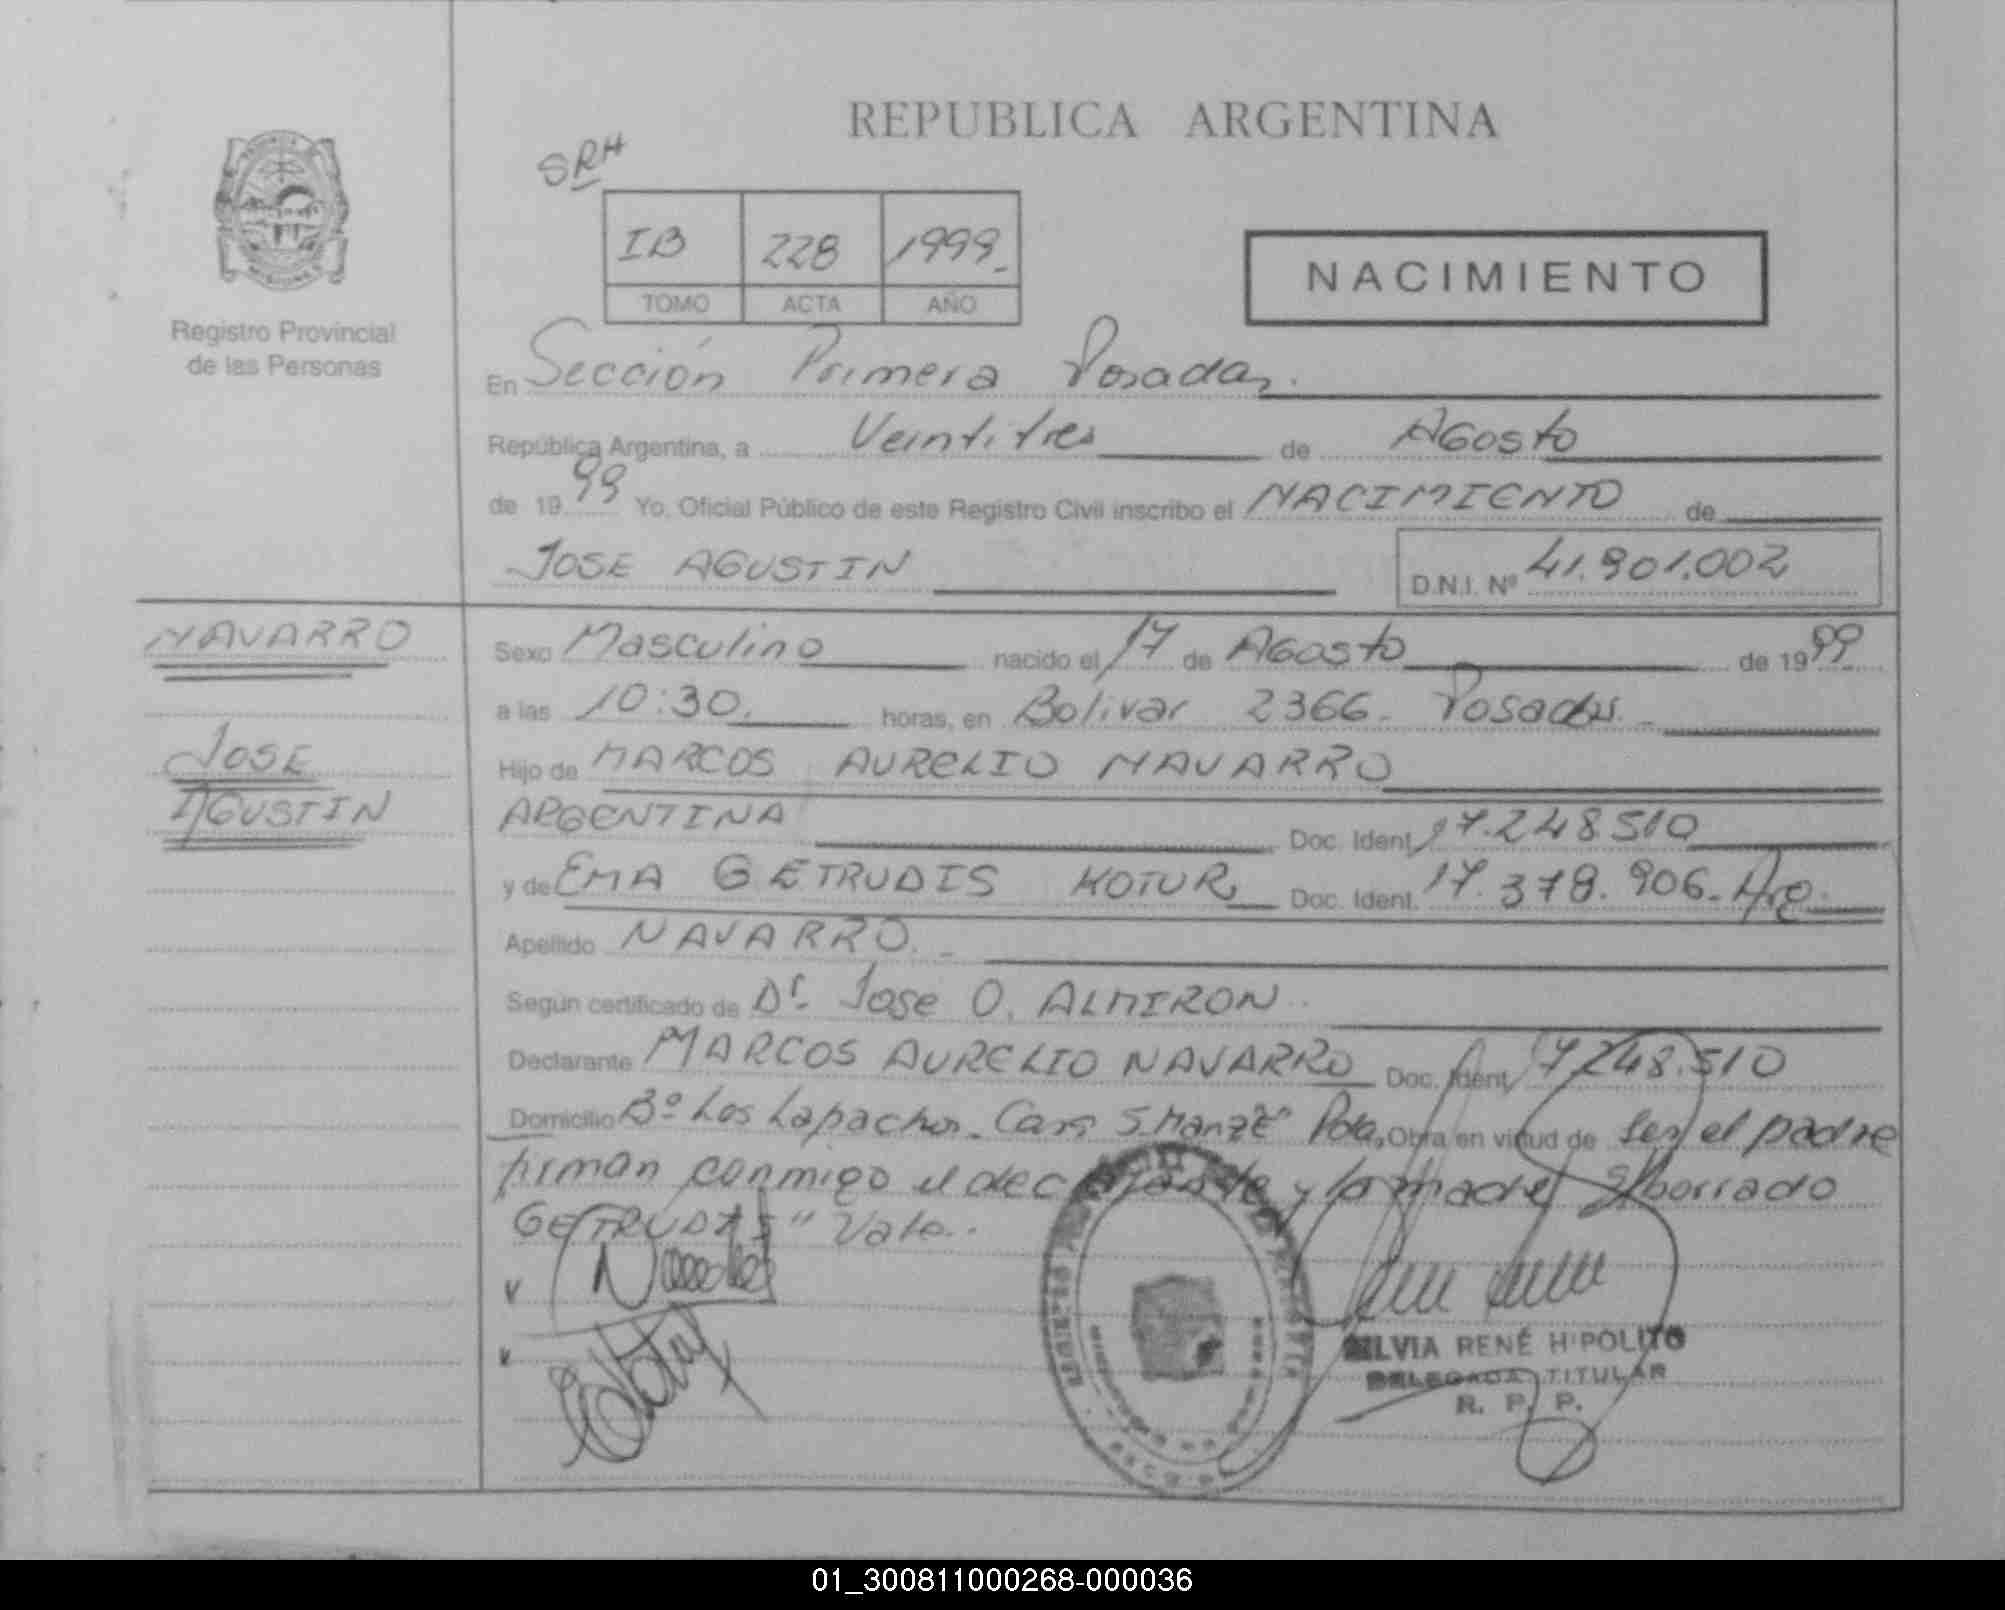 REPUBLICA ARGENTINA
SRH
IB 228 1999
TOMO ACTA AÑO
NACIMIENTO
Registro Provincial
de las Personas
En Sección Primera Posadas.
República Argentina, a Veintitres de Agosto
de 1999 Yo, Oficial Público de este Registro Civil inscribo el NACIMIENTO de
JOSE AGUSTIN D.N.I. Nº 41.901.002
NAVARRO
Sexo Masculino nacido el 17 de Agosto de 1999
a las 10:30. horas, en Bolivar 2366. Posadas.
JOSE
Hijo de MARCOS AURELIO NAVARRO
AGUSTIN
ARGENTINA Doc. Ident. 17.248.510
y de EMA GETRUDIS KOTUR Doc. Ident. 17.378.906. Arg.
Apellido NAVARRO.
Según certificado de Dr. Jose O. ALMIRON
Declarante MARCOS AURELIO NAVARRO Doc. Ident. 17248.510
Domicilio Bº Los Lapachos. Casa 5 Manz E" Pdas, Obra en virtud de ser el padre
firman conmigo el declarante y la madre S/borrado
GETRUDIS" Vale.
SILVIA RENÉ HIPOLITO
DELEGADA TITULAR
R. P. P.
01_300811000268-000036